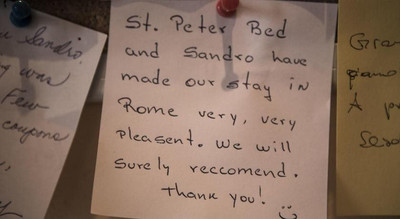 St. Peter Bed
and Sandro have
made our stay in
Rome very, very
pleasent. We will
surely reccomend.
Thank you!
Sandro,
was
Few